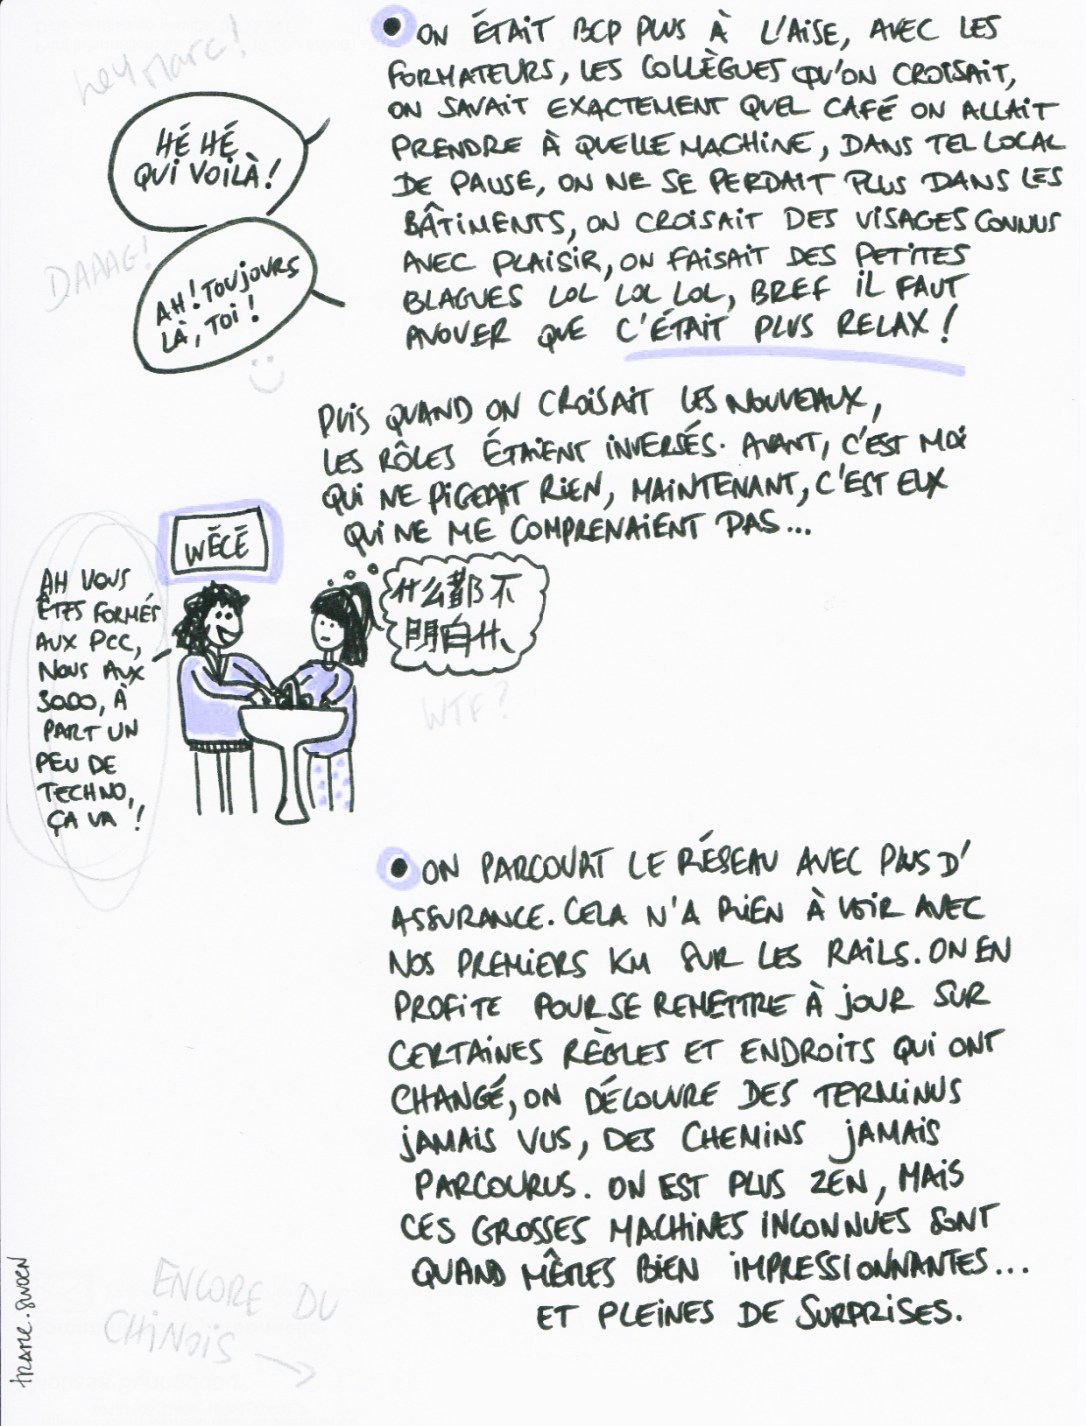 hey Marc!
HÉ HÉ
QUI VOILÀ!
DAAAG!
AH! TOUJOURS
LÀ, TOI!
• ON ÉTAIT BCP PLUS À L'AISE, AVEC LES
FORMATEURS, LES COLLÈGUES QU'ON CROISAIT,
ON SAVAIT EXACTEMENT QUEL CAFÉ ON ALLAIT
PRENDRE À QUELLE MACHINE, DANS TEL LOCAL
DE PAUSE, ON NE SE PERDAIT PLUS DANS LES
BÂTIMENTS, ON CROISAIT DES VISAGES CONNUS
AVEC PLAISIR, ON FAISAIT DES PETITES
BLAGUES LOL LOL LOL, BREF IL FAUT
AVOUER QUE C'ÉTAIT PLUS RELAX!
PUIS QUAND ON CROISAIT LES NOUVEAUX,
LES RÔLES ÉTAIENT INVERSÉS. AVANT, C'EST MOI
QUI NE PIGEAIT RIEN, MAINTENANT, C'EST EUX
QUI NE ME COMPRENAIENT PAS...
WÉCÉ
AH VOUS
ÊTES FORMÉS
AUX PCC,
NOUS AUX
3000, À
PART UN
PEU DE
TECHNO,
ÇA VA!
什么都不
明白什、
WTF?
• ON PARCOURT LE RÉSEAU AVEC PLUS D'
ASSURANCE. CELA N'A RIEN À VOIR AVEC
NOS PREMIERS KM SUR LES RAILS. ON EN
PROFITE POUR SE REMETTRE À JOUR SUR
CERTAINES RÈGLES ET ENDROITS QUI ONT
CHANGÉ, ON DÉCOUVRE DES TERMINUS
JAMAIS VUS, DES CHEMINS JAMAIS
PARCOURUS. ON EST PLUS ZEN, MAIS
CES GROSSES MACHINES INCONNUES SONT
QUAND MÊMES BIEN IMPRESSIONNANTES...
ET PLEINES DE SURPRISES.
ENCORE DU
CHINOIS